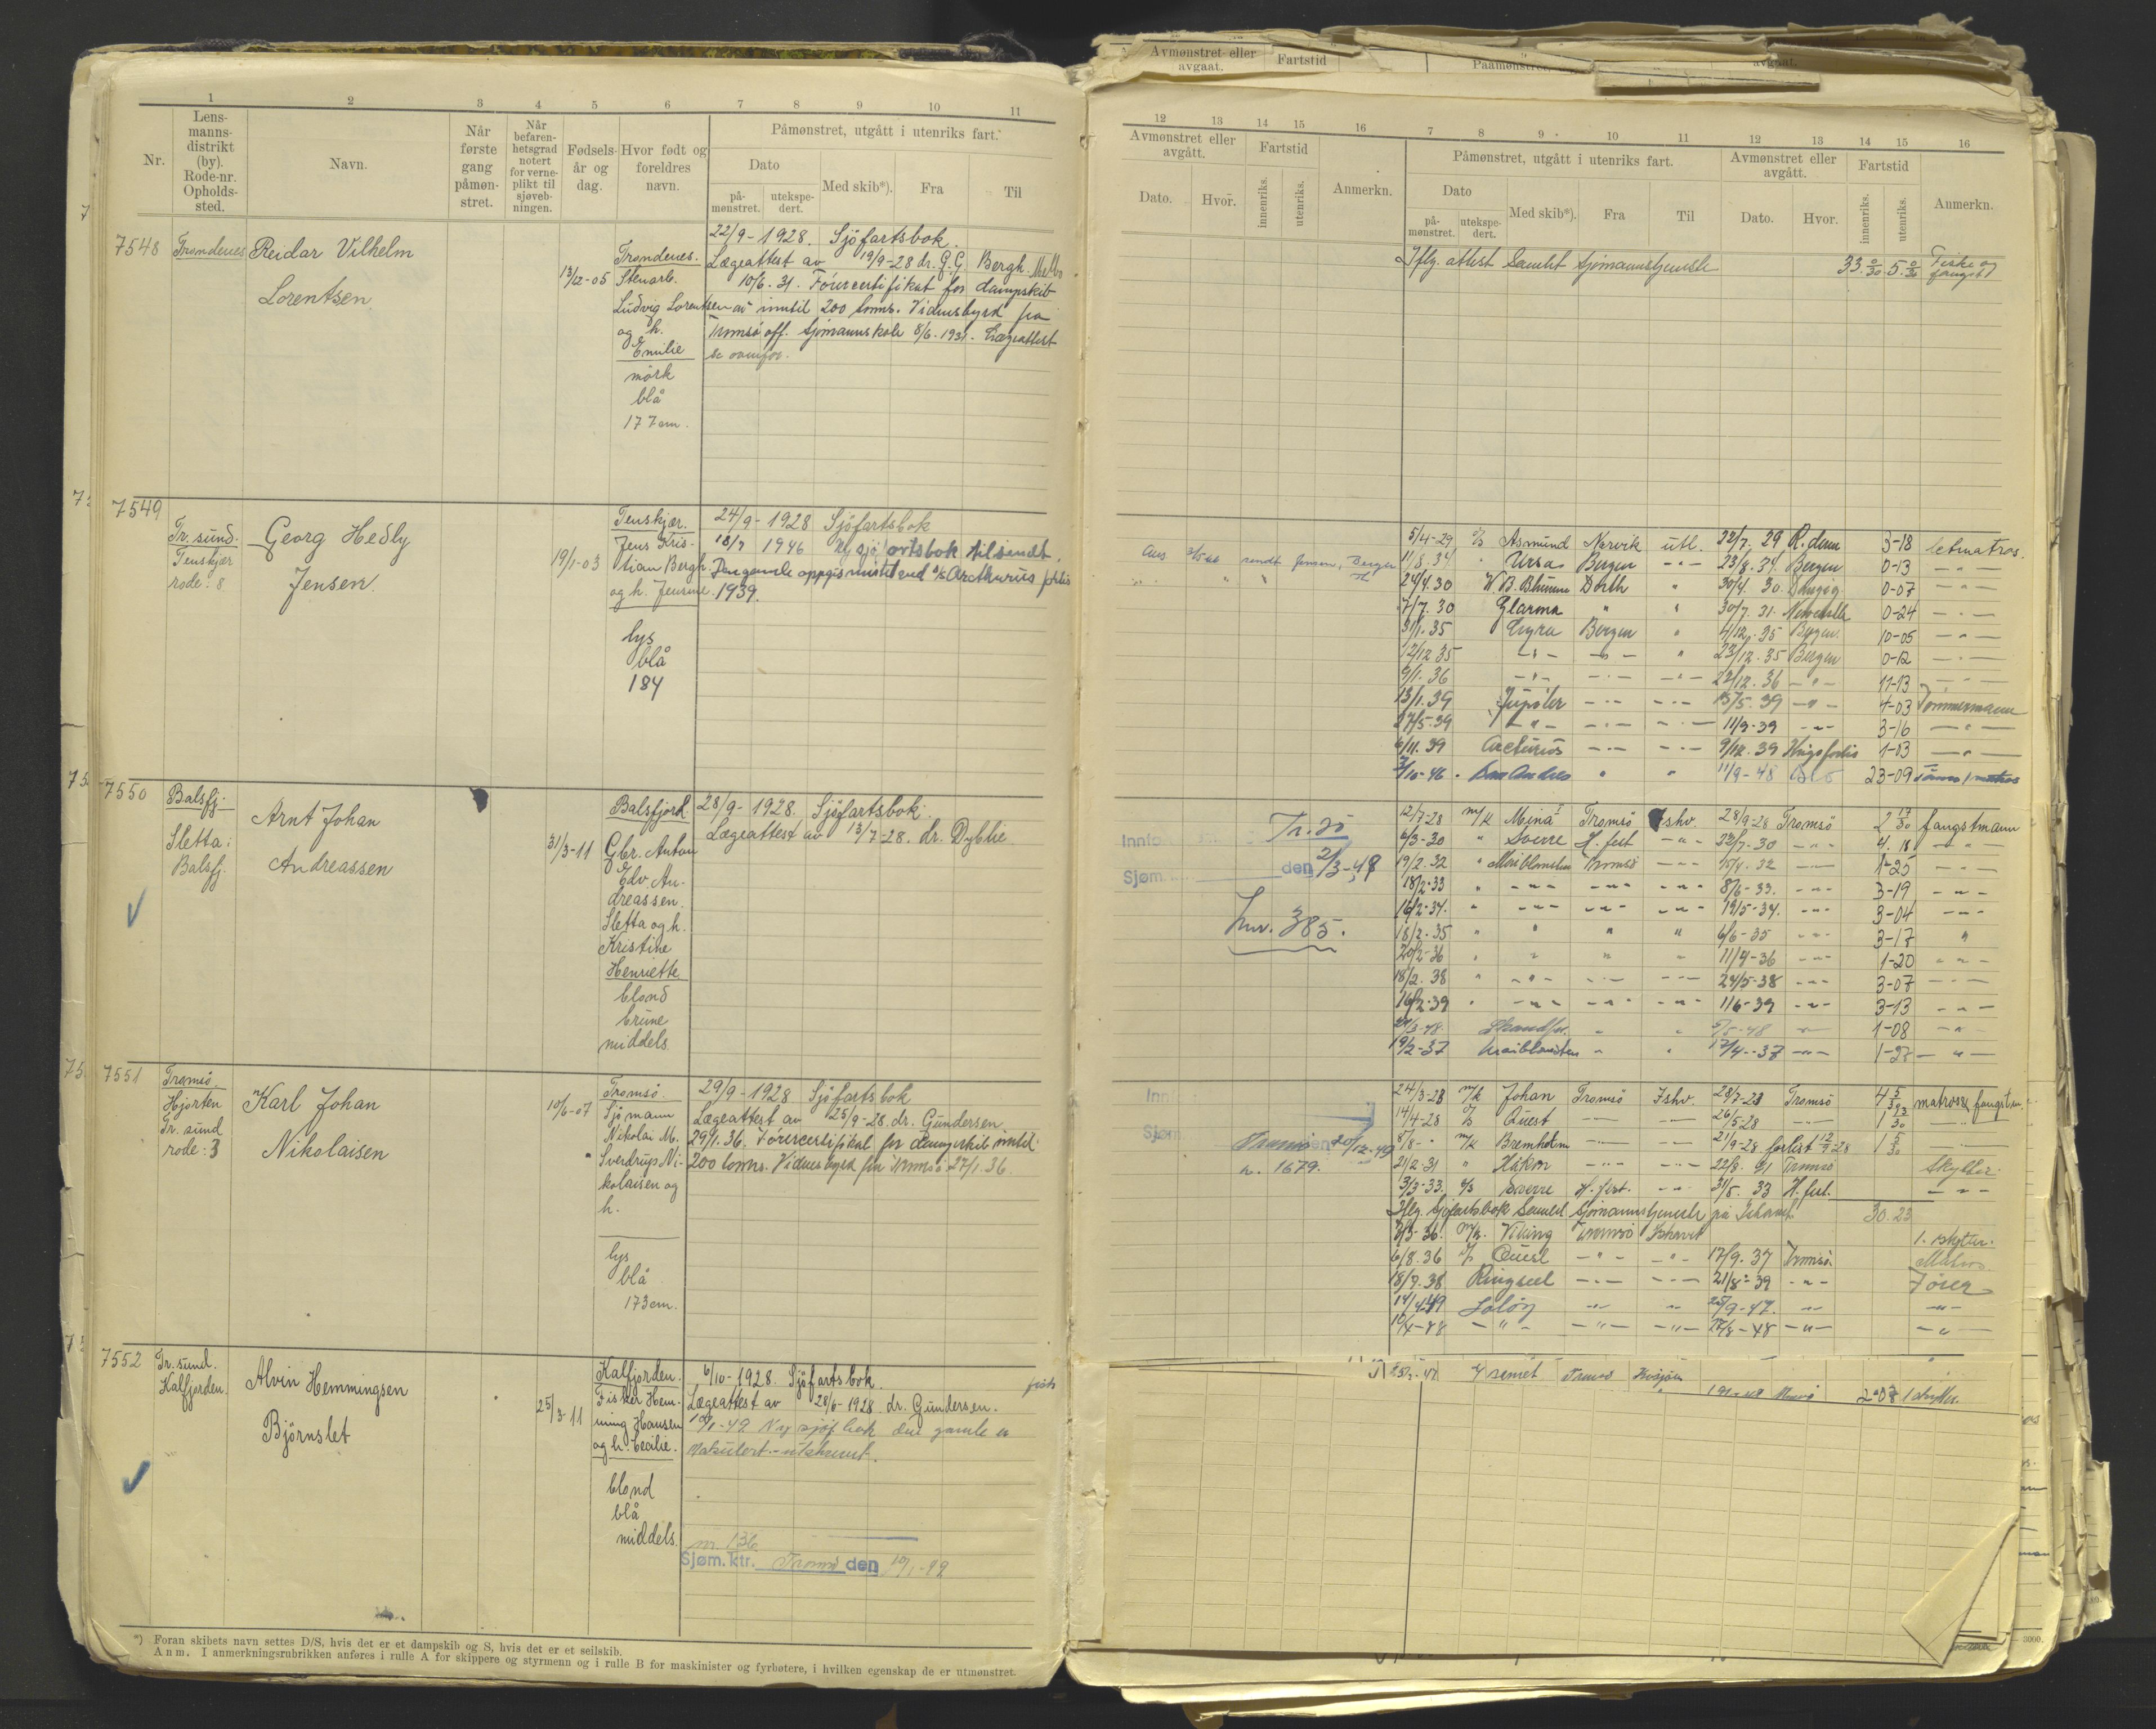 1 2 3 4 5 6 7 8 9 10 11
Nr.
Lens-
manns-
distrikt
(by).
Rode-nr.
Opholds-
sted.
Navn.
Når
første
gang
påmøn-
stret.
Når
befaren-
hetsgrad
notert
for verne-
plikt til
sjøveb-
ningen.
Fødsels-
år og
dag.
Hvor født og
foreldres
navn.
Påmønstret, utgått i utenriks fart.
Dato
på-
mønstret.
utekspe-
dert.
Med skib*).
Fra
Til
7548
Tromdenes
Reidar Vilhelm
Lorentsen
13/12-05
Tromdenes.
Stenarb.
Ludvig Lorentsen
og h.
Emilie
mörk
blå
177 cm.
22/9-1928. Sjöfartsbok.
Lægeattest av 19/9-28 dr. G. G. Bergh. Melbo.
10/6. 31. Förercertifikat for dampskib
av inntil 200 tonns. Vidnesbyrd fra
Tromsö off. Sjömannskole 8/6. 1931. Lægeattest
se ovenfor.
7549
Tr. sund.
Tenskjær
rode: 8
Georg Hedly
Jensen.
19/1-03
Tenskjær.
Jens Kris-
tian Bergh.
og h. Jensine.
lys
blå
184
24/9-1928 Sjöfartsbok
18/7 1946 Ny sjöfartsbok tilsendt.
Den gamle oppgis mistet ved s/s Arcthurus forlis
1939.
7550
Balsfj:
Sletta:
Balsfj.
Arnt Johan
Andreassen
31/3-11
Balsfjord.
Gbr. Anton
Edv. An-
dreassen.
Sletta og h.
Kristine
Henriette
blond
brune
middels
28/9-1928. Sjöfartsbok.
Lægeattest av 13/7-28. dr. Dyblie
7551
Tromsö.
Hjorten
Tr. sund
rode: 3
Karl Johan
Nikolaisen
10/6-07
Tromsö.
Sjömann
Nikolai M.
Sverdrups Ni-
kolaisen og
h.
lys
blå
173 cm.
29/9-1928 Sjöfartsbok
Lægeattest av 25/9-28. dr. Gundersen
29/1. 36. Förercertifikat for dampskib inntil
200 tonns. Vidnesbyrd fra Tromsö 27/1. 36.
7552
Tr. sund.
Kalfjorden.
Alvin Hemmingsen
Bjørnslet
25/3-11
Kalfjorden.
Fisker Hem-
ming Hansen
og h. Cecilie.
blond
blå
middels.
6/10-1928. Sjöfartsbok.
Lægeattest av 28/6-1928 dr. Gundersen.
10/1-49 Ny sjöf bok den gamle er
makulert - utskrevet.
nr. 136
Sjøm.ktr. Tromsö den 10/1-49
*) Foran skibets navn settes D/S, hvis det er et dampskib og S, hvis det er et seilskib.
Anm. I anmerkningsrubrikken anføres i rulle A for skippere og styrmenn og i rulle B for maskinister og fyrbøtere, i hvilken egenskap de er utmønstret.
Avmønstret eller
avgaat.
Fartstid
12 13 14 15 16 7 8 9 10 11 12 13 14 15 16
Avmønstret eller
avgått.
Fartstid
Dato.
Hvor.
innenriks.
utenriks.
Anmerkn.
Påmønstret, utgått i utenriks fart.
Dato
på-
mønstret.
utekspe-
dert.
Med skib*).
Fra
Til
Avmønstret eller
avgått.
Dato.
Hvor.
Fartstid
innenriks.
utenriks.
Anmerkn.
Iflg. attest Samlet Sjömannstjeneste 33 0/30 5 0/30 Fiske og
fangst
5/4-29 Asmund Narvik utl. 22/7. 29 R.dam 3-18 letmatros.
11/8. 34 Ursa Bergen 23/8. 34. Bergen 0-13
24/4. 30 30/4. 30. 0-07
7/7. 30 30/7. 31. Newcastle 0-24
31/1. 35 Lyra Bergen 4/12. 35 Bergen. 10-05
12/12 35 23/12. 35 Bergen 0-12
9/1. 36 22/12. 36 11-13
13/1. 39 Jupiter 15/5. 39 4-03 Tömmermann
27/5. 39 11/9-39 3-16
6/11. 39 Arcturus 9/12. 39 forlis 1-03
2/10-46 San Andres 11/9-48 23-09
12/7-28 m/k Mina I Tromsö Ishv. 28/9-28 Tromsö 2 17/30 fangstmann
6/3-30 Sverre H. fest 23/7-30 4. 18
19/2. 32 Maiblomsten Tromsö 15/4. 32 1-25
18/2-33 8/6-33. 3-19
16/2-34. 19/5-34. 3-04
18/2. 35 6/6-35 3-17
20/2-36 11/4-36 1-20
18/2. 38 24/5-38 3-07
16/2-39 1/6-39 3-13
5/5-48 1-08
19/2-37 Maiblomsten 17/4-37
Tr. sö
den 2/3-48
Sjøm.
Lnr. 385.
24/3-28 m/k Johan Tromsö Ishv. 28/7-28 Tromsö 4 5/30 matros & fangstm.
14/4-28 Quest 26/5-28 1 13/30
8/8- m/k Bremholm 21/9-28 forlist 12/9-28 1 5/30
21/2. 31 Håkon 22/8. 31 Tromsö Skytter.
3/3-33. Sverre H. fest. 31/5. 33 H. fest.
Iflg. Sjöfartsbok Samlet Sjömannstjeneste på Ishavet 30. 23
3/3-36. m/k. Viking Tromsö Ishavet 1. skytter.
6/8. 36 Quest 17/9. 37 Tromsö. Matros
18/7. 38 Ringsel 21/8-39 Förer
25/9-47.
10/4-48 27/8-48
Tromsö den 20/12-49
n. 1679.
Tromsö 2-08 1 skytter.
3000.